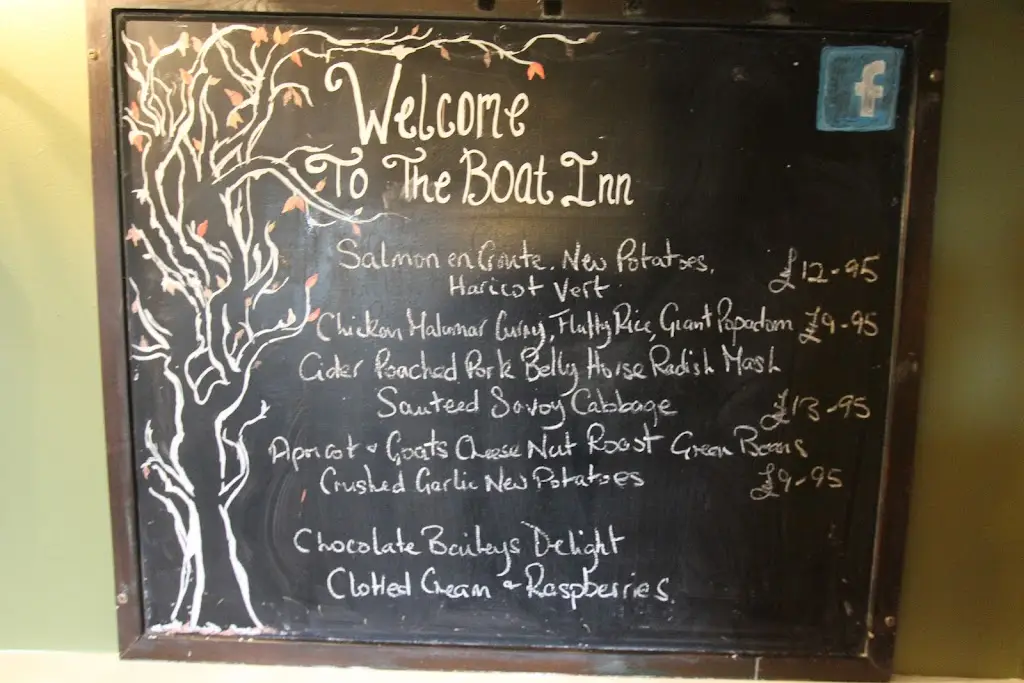 f
Welcome
To The Boat Inn
Salmon en Croute. New Potatoes,
Haricot Vert £12-95
Chicken Malumar Curry, Fluffy Rice, Giant Papadom £9-95
Cider Poached Pork Belly Horse Radish Mash
Sauteed Savoy Cabbage £13-95
Apricot & Goats Cheese Nut Roast Green Beans
Crushed Garlic New Potatoes £9-95
Chocolate Baileys Delight
Clotted Cream & Raspberries.